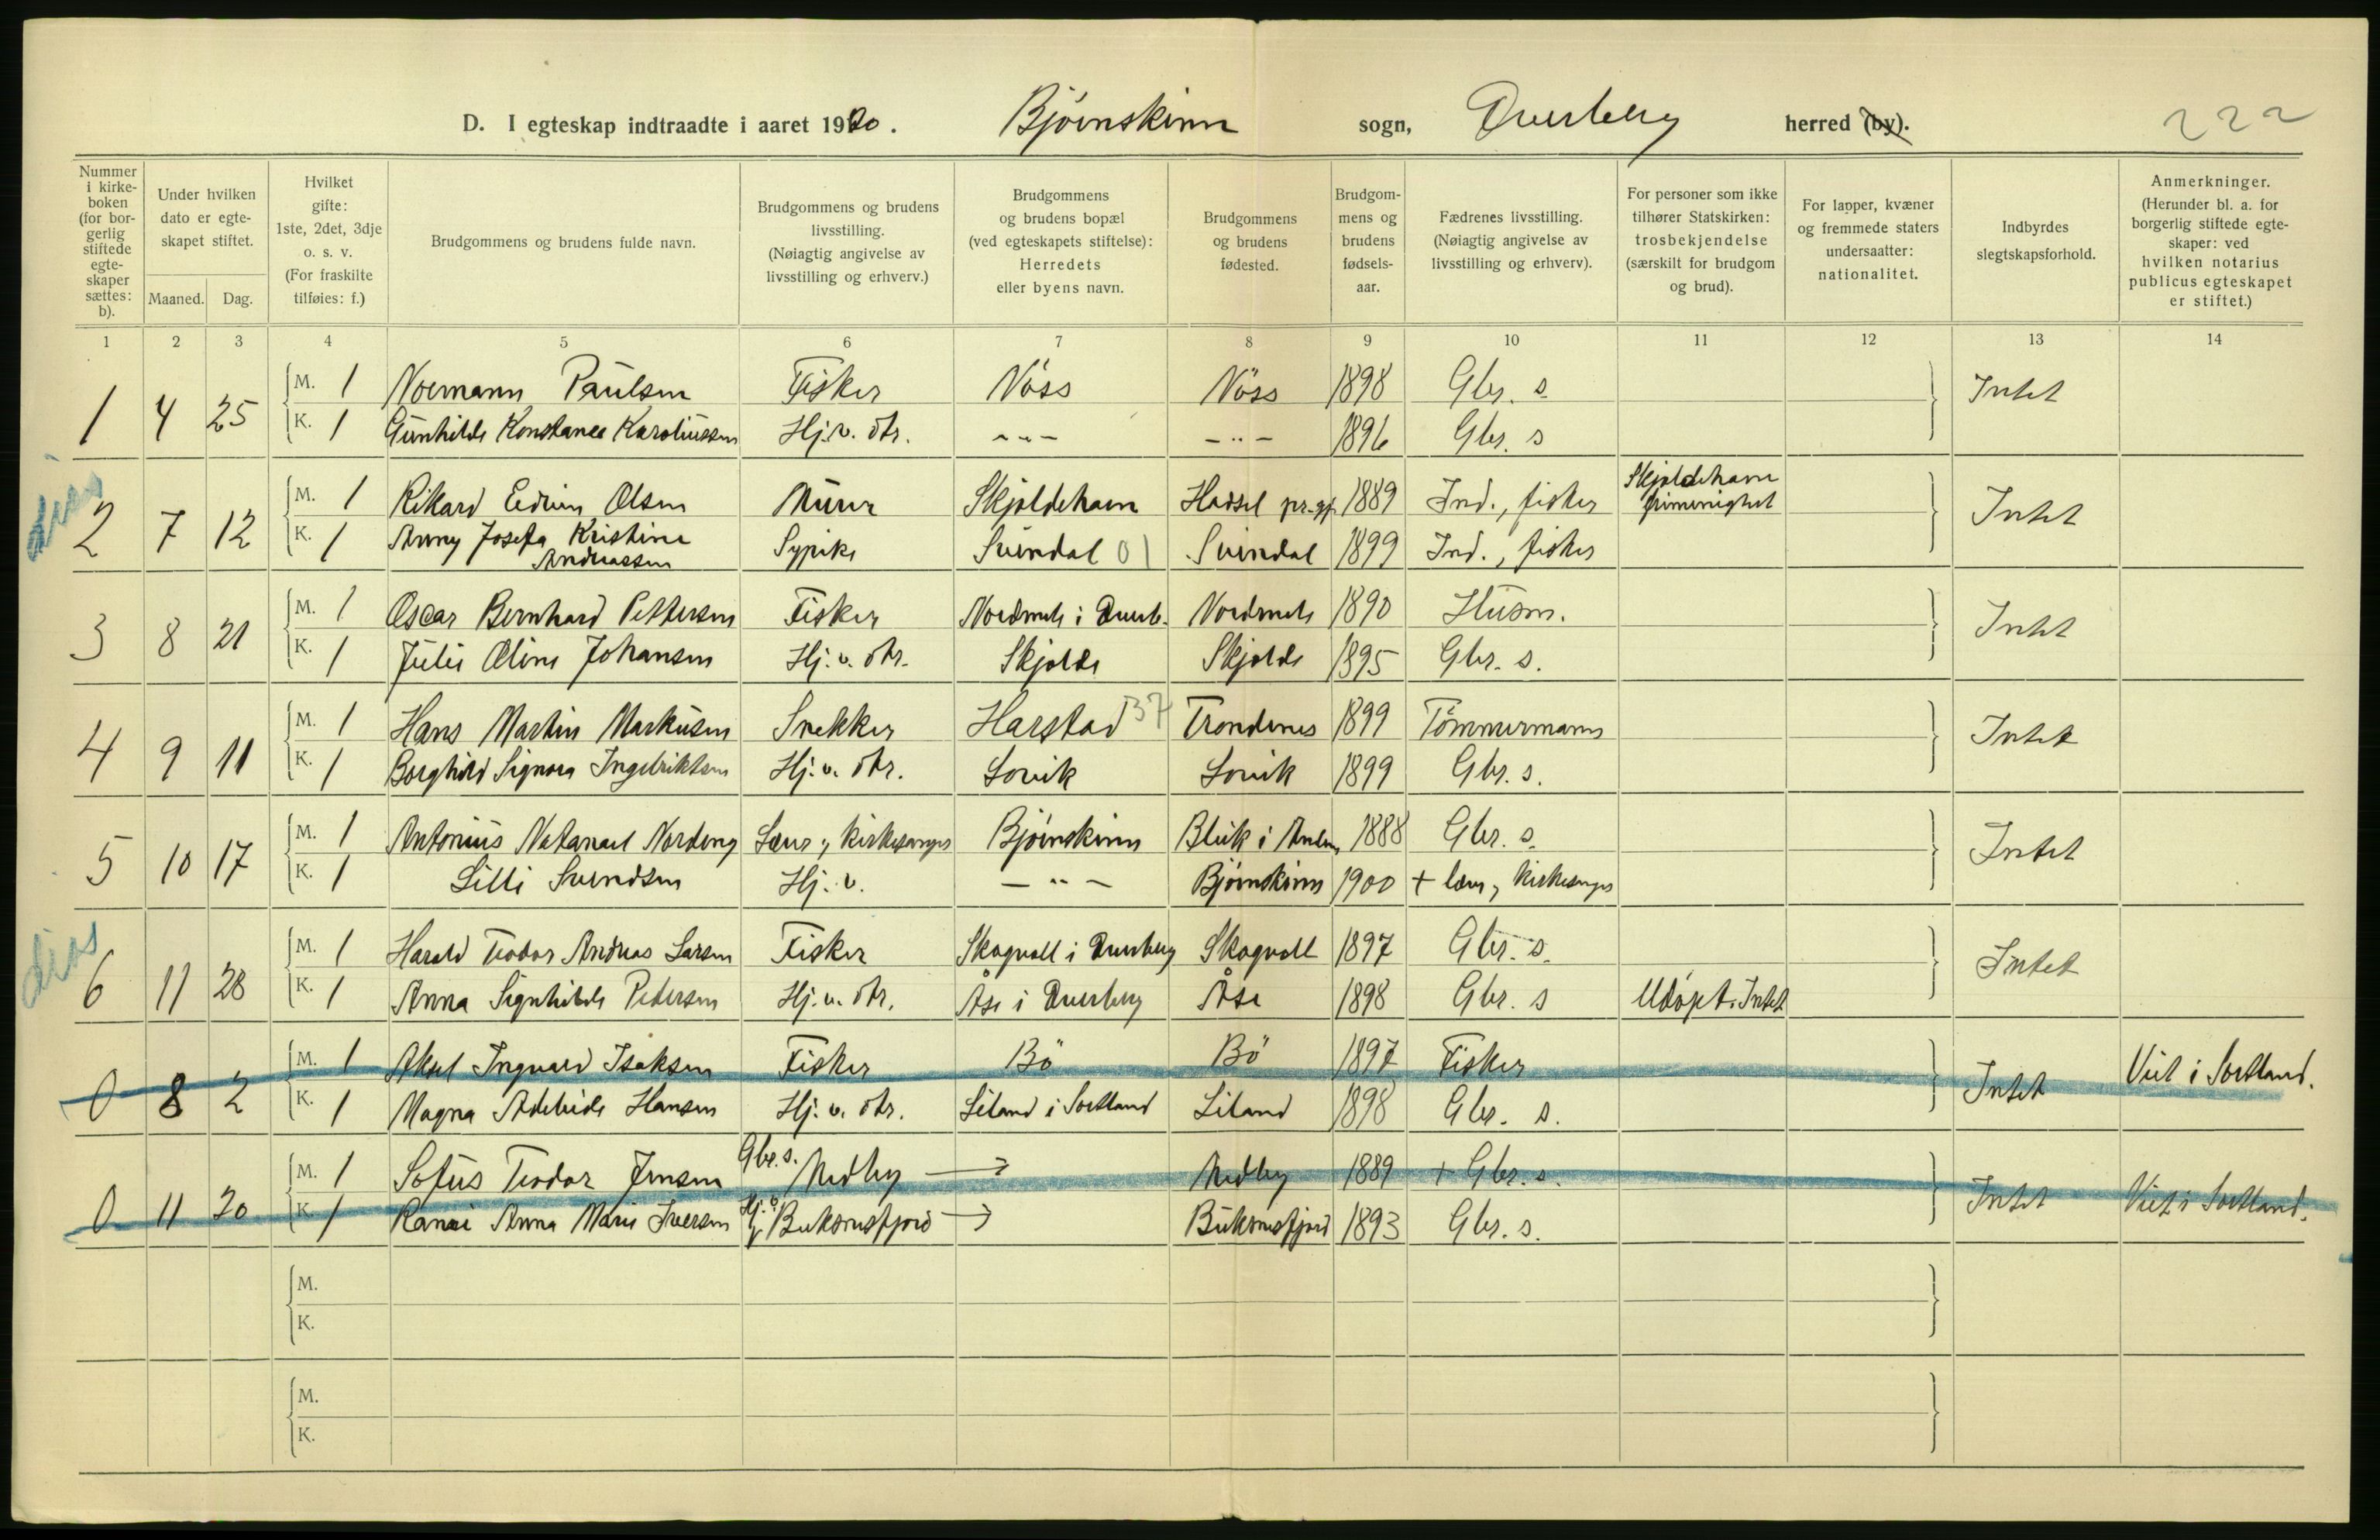 D. I egteskap indtraadte i aaret 1920. Bjørnskinn sogn, Dverberg herred (by). 222
Nummer i kirkeboken (for borgerlig stiftede egteskaper sættes: b).
Under hvilken dato er egteskapet stiftet.
Maaned. Dag.
Hvilket gifte: 1ste, 2det, 3dje o. s. v. (For fraskilte tilføies: f.)
Brudgommens og brudens fulde navn.
Brudgommens og brudens livsstilling. (Nøiagtig angivelse av livsstilling og erhverv.)
Brudgommens og brudens bopæl (ved egteskapets stiftelse): Herredets eller byens navn.
Brudgommens og brudens fødested.
Brudgommens og brudens fødselsaar.
Fædrenes livsstilling. (Nøiagtig angivelse av livsstilling og erhverv).
For personer som ikke tilhører Statskirken: trosbekjendelse (særskilt for brudgom og brud).
For lapper, kvæner og fremmede staters undersaatter: nationalitet.
Indbyrdes slegtskapsforhold.
Anmerkninger. (Herunder bl. a. for borgerlig stiftede egteskaper: ved hvilken notarius publicus egteskapet er stiftet.)
1 2 3 4 5 6 7 8 9 10 11 12 13 14
1 4 25 M. 1 Normann Paulsen Fisker Nöss Nöss 1898 Gbr. s. Intet
K. 1 Gunhilde Konstance Karoliussen Hj. v. dtr. -"- -"- 1896 Gbr. s
2 7 12 M. 1 Rikard Edvin Olsen Murer Skjoldehavn Hadsel pr.gj. 1889 Ind., fisker Skjoldehavn frimenighet Intet
K. 1 Anny Josefa Kristine Andreassen Sypike Svindal 01 Svindal 1899 Ind., fisker
3 8 21 M. 1 Oscar Bernhard Pettersen Fisker Nordmela i Dverb. Nordmela 1890 Husm. Intet
K. 1 Julie Oline Johansen Hj. v. dtr. Skjolde Skjolde 1895 Gbr. s.
4 9 11 M. 1 Hans Martin Markusen Snekker Harstad 37 Trondenes 1899 Tömmermann Intet
K. 1 Borghild Signora Ingebriktsen Hj. v. dtr. Lovik Lovik 1899 Gbr. s.
5 10 17 M. 1 Antonius Natanael Nordeng Lærer, kirkesanger Bjørnskinn Bleik i 1888 Gbr. s. Intet
K. 1 Lilli Svendsen Hj. v. -"- Bjørnskinn 1900 + lærer, kirkesanger
6 11 28 M. 1 Harald Teodor Andreas Larsen Fisker Skogvoll i Dverberg Skogvoll 1897 Gbr. s. Intet
K. 1 Anna Signhilde Pedersen Hj. v. dtr. Åse i Dverberg Åse 1898 Gbr. s Udöpt. Intet
0 8 2 M. 1 Aksel Ingvard Isaksen Fisker Bö Bö 1897 Fisker Intet Viet i Sortland.
K. 1 Magna Adeleide Hansen Hj. v. dtr. Liland i Sortland Liland 1898 Gbr. s.
0 11 20 M. 1 Sofus Teodor Jensen Gbr. s. Medby → Medby 1889 + Gbr. s. Intet Viet i Sortland.
K. 1 Ranai Anna Marie Iversen Hj. v. Buksnesfjord → Buksnesfjord 1893 Gbr. s.
M.
K.
M.
K.